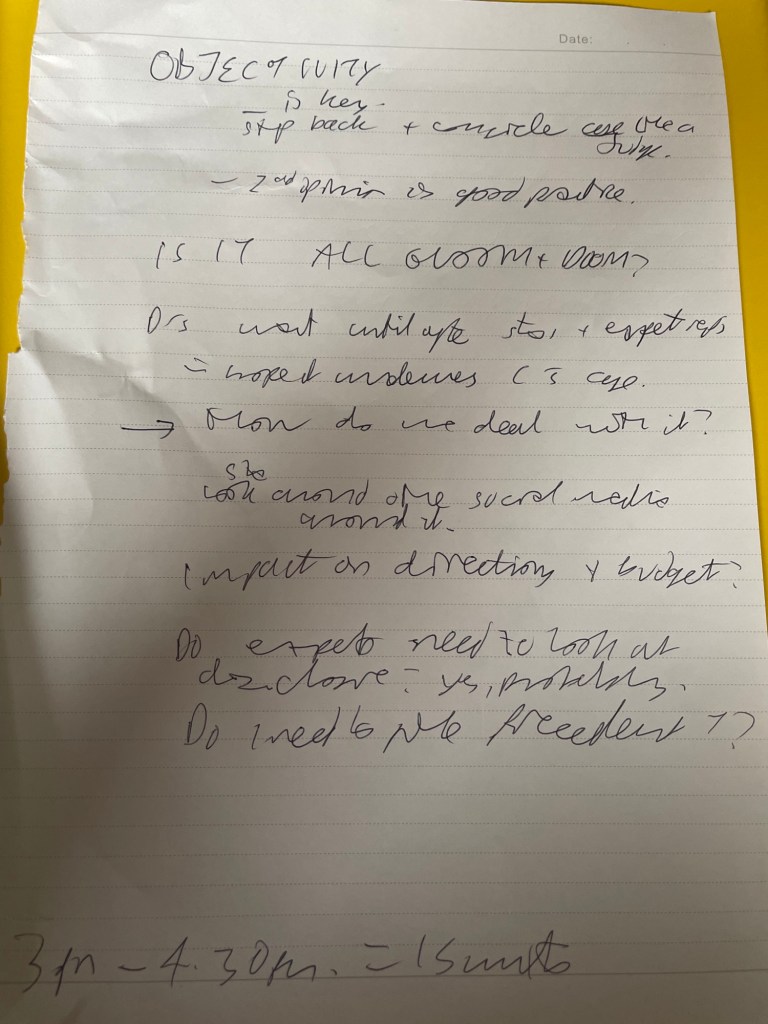 Date:
OBJECTIVITY
is key.
step back + consider case like a
Judge.
- 2nd opinion is good practice.
IS IT ALL GLOOM + DOOM?
D's wait until after + expert reps
= undermines C's case.
→ How do we deal with it?
look around social media
around it.
Impact on directions + budget?
Do experts need to look at
disclosure = yes, probably.
Do I need to precedent T?
3pm - 4.30pm. = 15 units